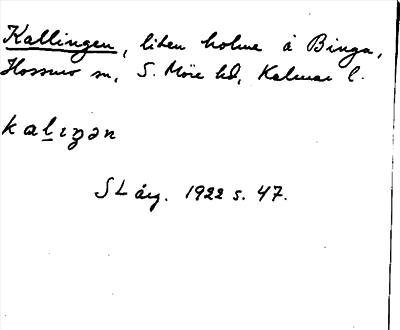 Kallingen, liten holme å Binga,
Hossmo sn, S. Möre hd, Kalmar l.
kalɩŋən
SL årg. 1922 s. 47.